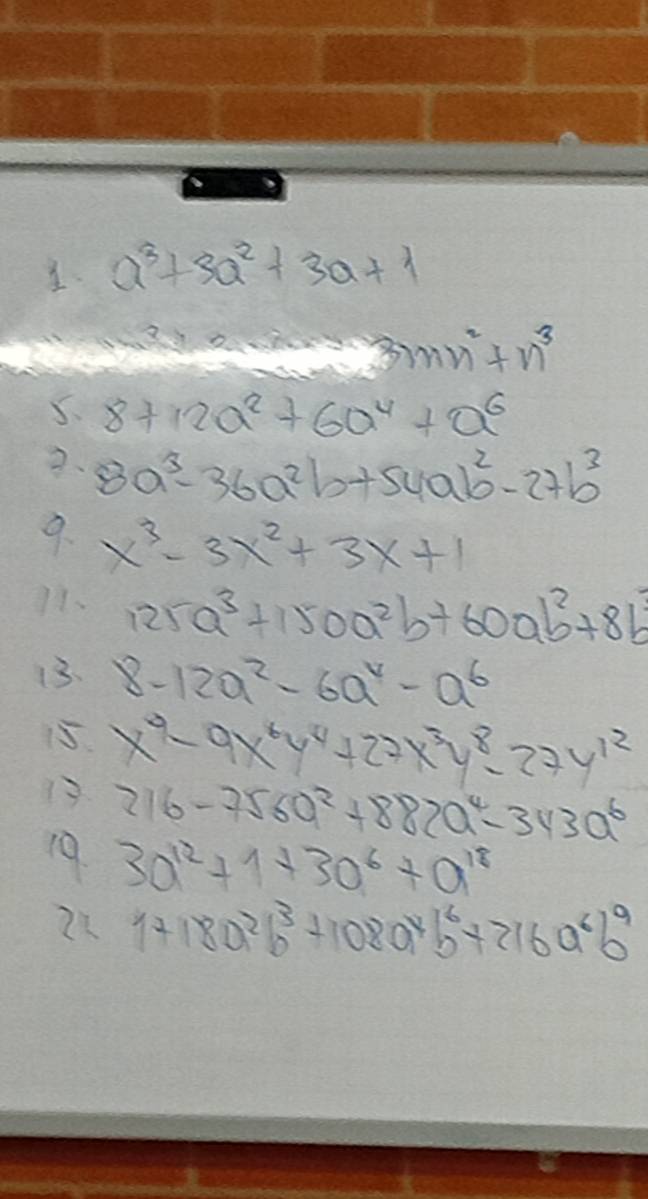 1. a³+3a²+3a+1
3mn²+n³
5. 8+12a²+6a⁴+a⁶
7. 8a³-36a²b+54ab²-27b³
9. x³-3x²+3x+1
11. 125a³+150a²b+60ab²+8b³
13. 8-12a²-6a⁴-a⁶
15. x⁹-9x⁶y⁴+27x³y⁸-27y¹²
17. 216-756a²+882a⁴-343a⁶
19. 3a¹²+1+3a⁶+a¹⁸
21. 1+18a²b³+108a⁴b⁶+216a⁶b⁹